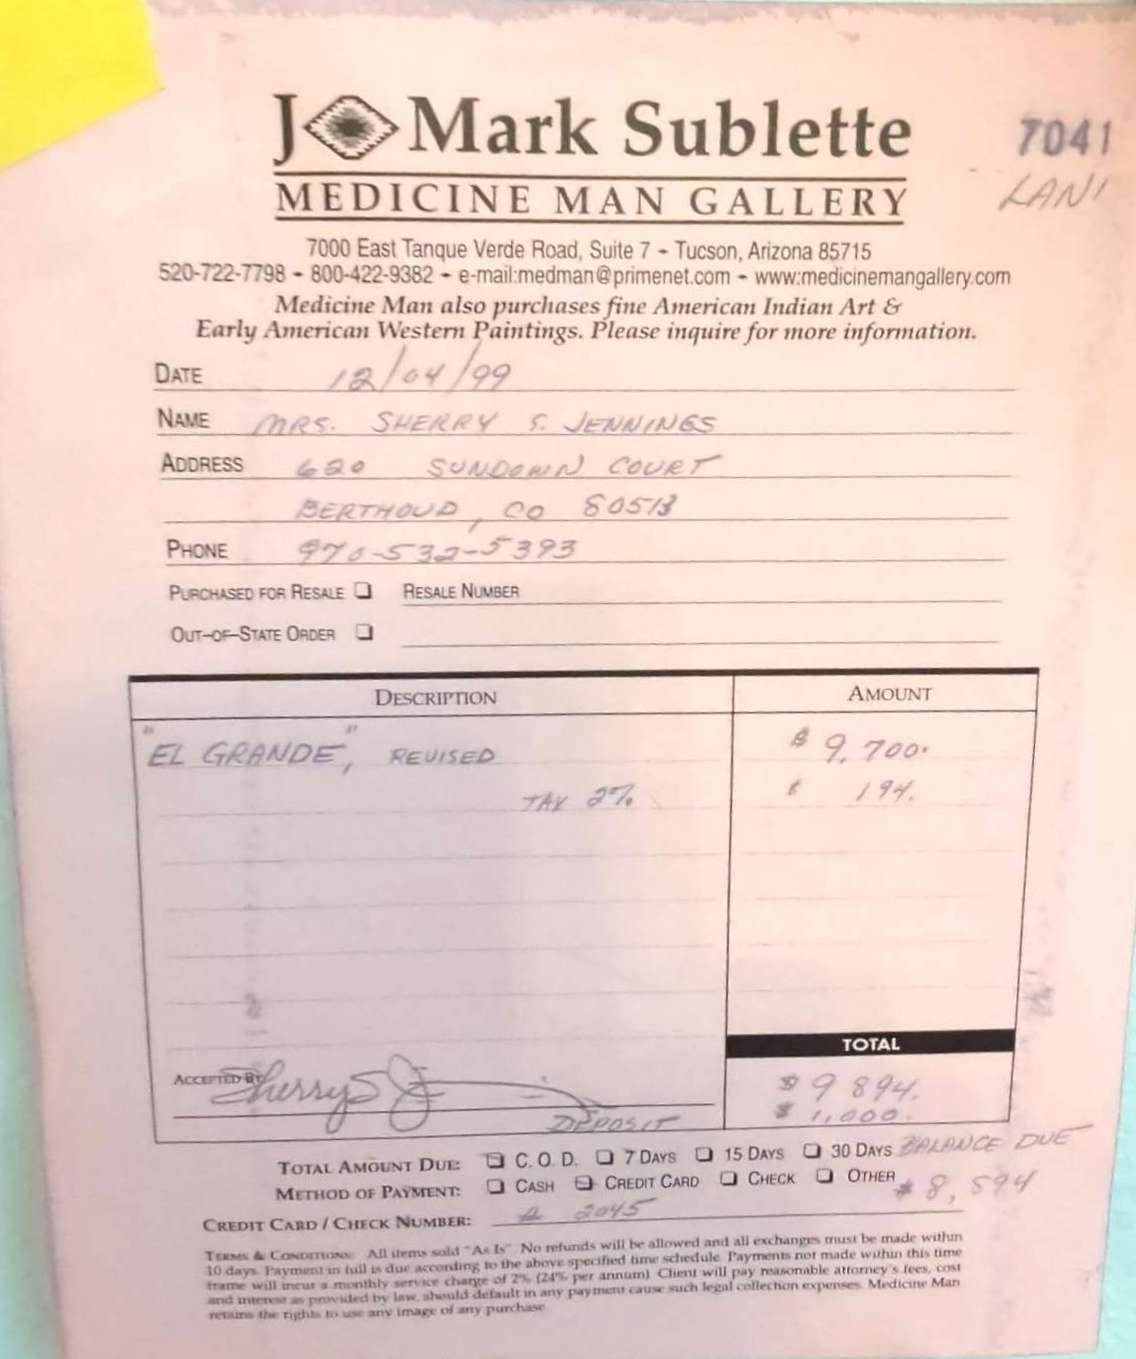 J Mark Sublette
7041
MEDICINE MAN GALLERY
LANI
7000 East Tanque Verde Road, Suite 7 - Tucson, Arizona 85715
520-722-7798 - 800-422-9382 - e-mail:medman@primenet.com - www.medicinemangallery.com
Medicine Man also purchases fine American Indian Art &
Early American Western Paintings. Please inquire for more information.
DATE 12/04/99
NAME MRS. SHERRY S. JENNINGS
ADDRESS 620 SUNDOWN COURT
BERTHOUD, CO 80513
PHONE 970-532-5393
PURCHASED FOR RESALE ❑ RESALE NUMBER
OUT-OF-STATE ORDER ❑
DESCRIPTION AMOUNT
"EL GRANDE," REVISED $ 9,700.
TAX 2% $ 194.
TOTAL
ACCEPTED BY Sherry S J $ 9 894.
DEPOSIT $ 1,000.
TOTAL AMOUNT DUE: ❑ C. O. D. ❑ 7 DAYS ❑ 15 DAYS ❑ 30 DAYS BALANCE DUE
METHOD OF PAYMENT: ❑ CASH ❑ CREDIT CARD ❑ CHECK ❑ OTHER $ 8,594
CREDIT CARD / CHECK NUMBER: # 2045
TERMS & CONDITIONS: All items sold "As Is". No refunds will be allowed and all exchanges must be made within
10 days. Payment in full is due according to the above specified time schedule. Payments not made within this time
frame will incur a monthly service charge of 2% (24% per annum). Client will pay reasonable attorney's fees, cost
and interest as provided by law, should default in any payment cause such legal collection expenses. Medicine Man
retains the rights to use any image of any purchase.